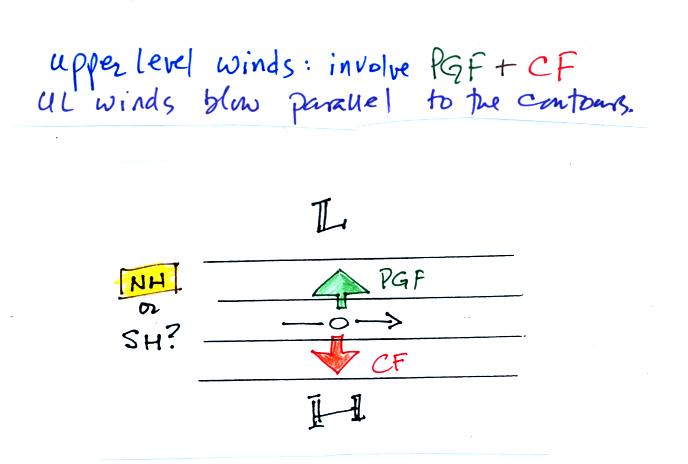 upper level winds: involve PGF + CF
UL winds blow parallel to the contours.
L
NH
or
SH?
PGF
CF
H